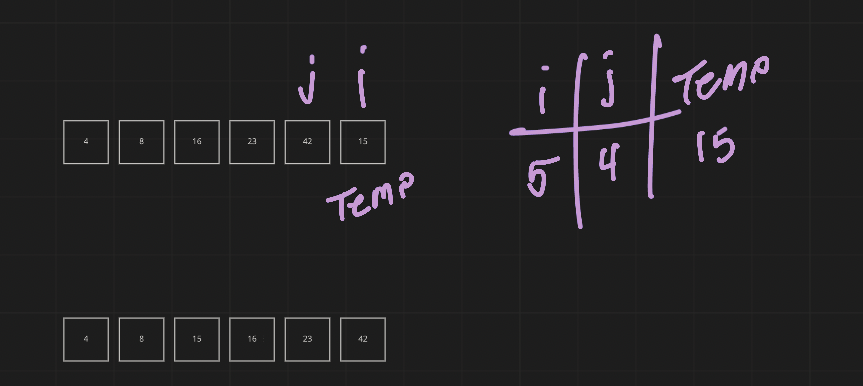 j i
4 8 16 23 42 15
Temp
i j Temp
5 4 15
4 8 15 16 23 42